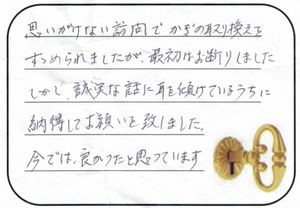 思いがけない訪問でかぎの取り換えを
すすめられましたが、最初はお断りしました
しかし、誠実な話に耳を傾けているうちに
納得してお願いを致しました。
今では、良かったと思っています